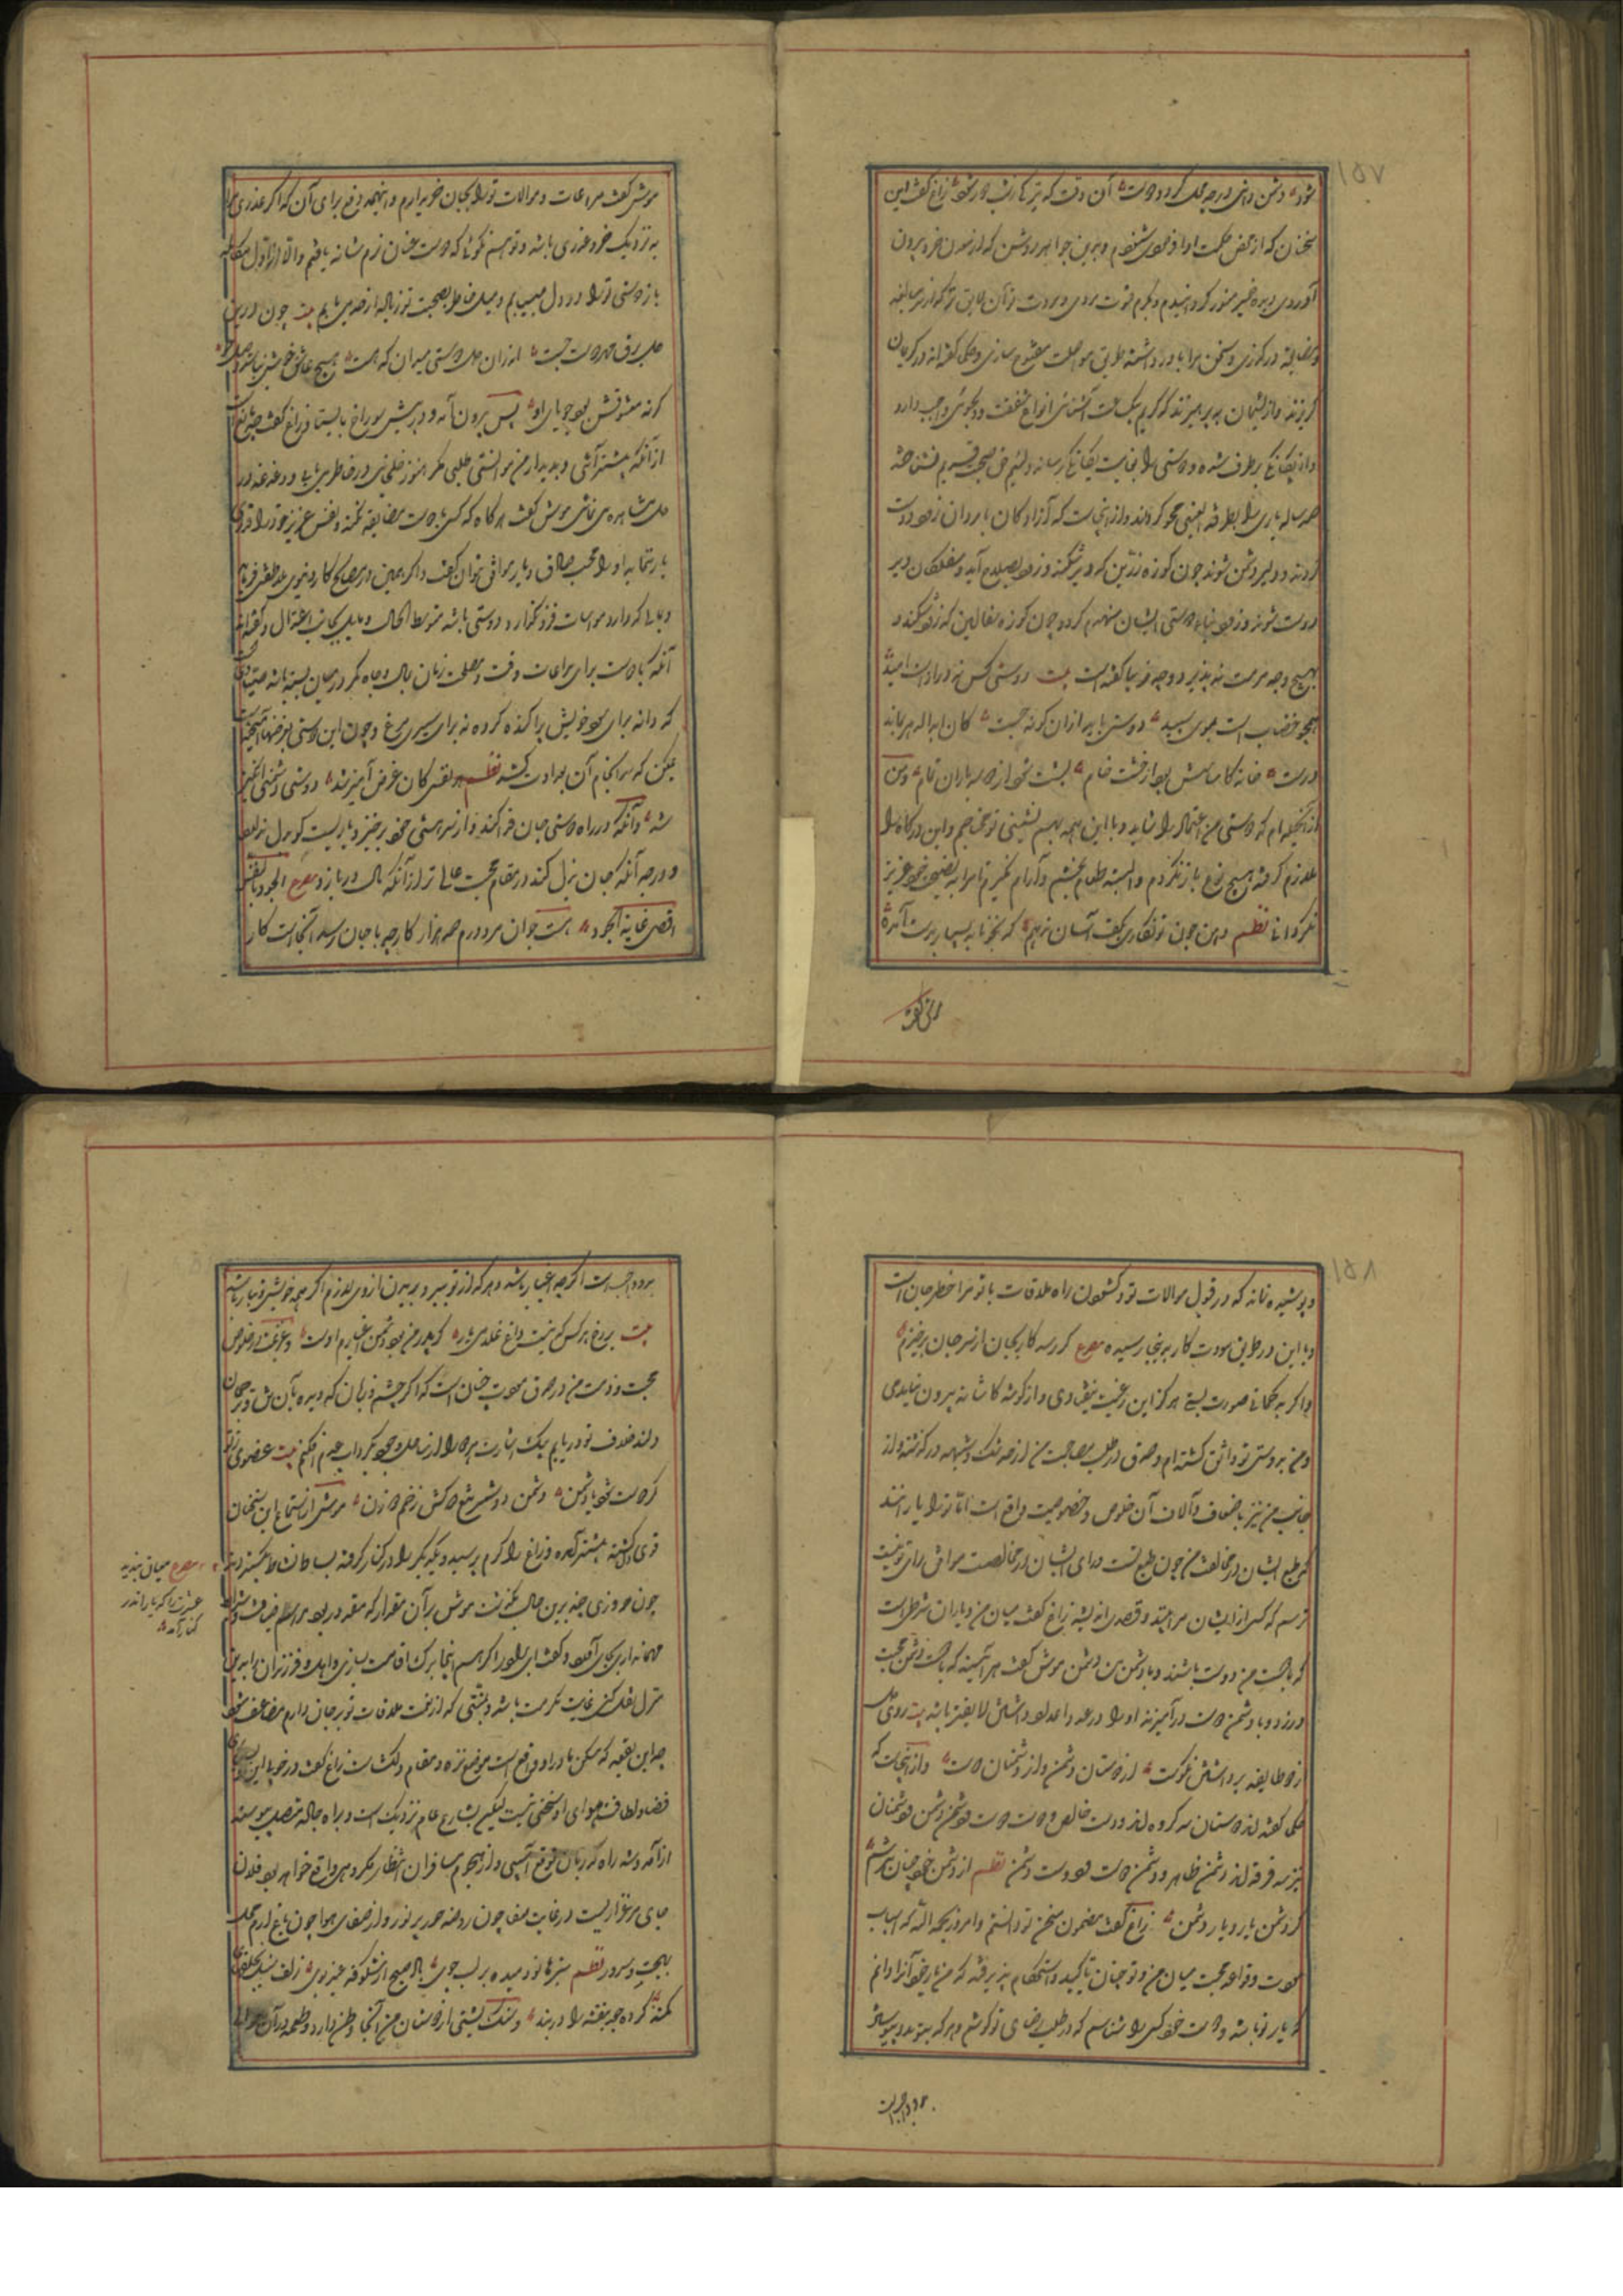 ١٥٧
شود دشمن دانی در چه محل گردد دوست آن وقت که تیر کار نشیب در شود زاغ گفت این
سخنان که از محض حکمت ادا فرمودی شنودم و بدین جواهر روشن که از معدن خرد بیرون
آوردی دیده ضمیر منور گردانیدم و بکرم فتوت مردی و مروت تو آن لایق تر که از سر مبالغه
و مضایقه درگذری و سخن مرا باور داشته طریق مواصلت مفتوح سازی و حکما گفته‌اند در کریمان
گریزند و از لئیمان بپرهیزند که کریم بیک ساعت آشنائی انواع شفقت و دلجوئی واجب دارد
و آن بیگانگی برطرف شده دوستی را بغایت یگانگی رساند و لئیم حق صحبت قدیم نشناخته
صد ساله یاری را بطرفة العینی محو گرداند و از اینجاست که آزادگان با یاران زود دوست
گردند و دیر دشمن شوند چون کوزه زرین که دیر شکند و زود بصلاح آید و سفلگان دیر
دوست شوند و زود بنای دوستی ایشان منهدم گردد چون کوزه سفالین که زود شکند و
بهیچ وجه مرمت نپذیرد و چه زیبا گفته است بیت دوستی کس نه در او است امید
همچو خضاب است بموی سپید دوستی باید از آن گونه جست کان ابدالدهر بماند
درست خانه کاساسش بود از خشت خام پشت شود از صد باران تمام و من
از آنجمله‌ام که دوستی من اعتماد را شاید و با این همه بهم نشینی تو محتاجم و این درگاه را
ملازم گرفته بهیچ نوع باز نگردم و البته طعام نچشم و آرام نگیرم تا مرا به صحبت خود عزیز
نگردانی نظم دامن چون تو نگاری بکف آسان ندهم که بخونابه بسیار بدست آمده
موش گفت
موش گفت مراعات و موالات ترا بجان خریدارم و اینهمه دفع برای آن که اگر غدری
به نزدیک خرد عذری باشد و تو هم نگوئی که دوست عنان نرم شانه یافتم و الا از اول مکالمه
باز دوستی ترا در دل مییابم و میل خاطر بصحبت تو زیاده از حد می یابم بیت چون درین
دل برق مهر دوست جست اندران دل دوستی میدان که هست هیچ عاشق خود نباشد وصل جو
کرنه معشوقش بود جویای او پس بیرون آمد و در پیش سوراخ بایستاد زاغ گفت چه مانع است
از آنکه پیشتر آئی و بدیدار من موانستی طلبی مگر هنوز خلجانی در خاطر می یابی و دغدغه در
دل مشاهده می نمائی موش گفت هر گاه که کسی با دوست مضایقه نکند و نفس عزیز خود را فدای
یار نماید او را محب صادق و یار موافق توان گفت و اگر همین در مصالح کار دنیوی ملاطفتی فرماید
و بمالی که دارد مواسات فرو نگذارد دوستی باشد متوسط الحال و مایل بجانب اعتدال و گفته‌اند
آنکه با دوست برای مراعات وقت و مصلحت زمان بمال و جاه کمر در میان بسته باشد صیادی
که دانه برای سود خویش پراکنده کرده نه برای سیری مرغ و چون این دوستی بغرضها آمیخته است
یمکن که سرانجام آن بعداوت کشد نظم هر نفسی کان غرض آمیز شد دوستی دشمنی انگیز
شد و آنکه در راه دوستی جان فدا کند و از سر هستی خود برخیزد یاریست کو بدل ندارد
و درجه آنکه جان بذل کند در مقام محبت عالی تر از آنکه مال دربازد مصرع الجود بالنفس
اقصی غایة الجود بیت جوانمرد درم صد هزار کار چو با جان رسد آنجاست کار
١٥٨
و پوشیده نماند که در قبول موالات تو و گشودن راه ملاقات با تو مرا خطر جان است
و با این در طریق مودت کار بدینجا رسیده مصرع گر رسد کار بجان از سر جان برخیزم
و اگر به گمانی صورت بستی هرگز این رغبت نیفتادی و از گوشه کاشانه بیرون نیامدمی
و من بدوستی تو واثق گشته‌ام و صدق تو در طلب مصاحبت من از حد شک و شبهه در گذشته و از
جانب من نیز باضعاف و آلاف آن خلوص و خصوصیت واقع است اما ترا یارانند
که طبع ایشان در مخالفت من چون طبع تست و رای ایشان در مخالصت موافق رای تو نیست
ترسم که کسی از ایشان مرا بیند و قصدی اندیشد زاغ گفت میان من و یاران شرط است
که با دوست من دوست باشند و با دشمن من دشمن موش گفت هر آینه که با دوست دشمن محبت
ورزد و با دشمن دوست درآمیزد او را در عداد اعدا داشتن لایقتر باشد بیت روی دل
از دو طایفه برداشتن نکوست از دوستان دشمن و از دشمنان دوست و از اینجاست که
حکما گفته‌اند دوستان سه گروه‌اند دوست خالص و دوست دوست و دشمن دشمن و دشمنان
نیز سه فرقه‌اند دشمن ظاهر و دشمن دوست و دوست دشمن نظم از دشمن خود چنان نترسم
کز دشمن یار و یار دشمن زاغ گفت مضمون سخن تو دانستم و امروز بحمد الله که اسباب
مودت و قواعد محبت میان من و تو چنان تاکید و استحکام پذیرفته که من یار خود آنرا دانم
که یار تو باشد و دوست خود کسی را شناسم که در طلب رضای تو کوشد و هر که بتو پیوندد پیوستن
بدو واجب است
بدو واجب است اگر چه اغیار باشد و هر که از تو ببرد بریدن از وی لازم اگر چه خویش و تبار باشد
بیت بر رخ هر کس که نیست داغ غلامی دوست گر پدر من بود دشمن و اغیارم اوست و عزیمت در خلوص
محبت و نیت من در صدق مودت چنان است که اگر چشم و زبان که دیده‌بان تن و ترجمان
دلند خلاف تو دریابم بیک اشارت هر دو را از ساحل وجود بگرداب عدم افکنم بیت عضوی ز تو
گر دوست شود با دشمن دشمن دو شمر تیغ دو کش زخم دو زن موش از استماع این سخنان
قوی دل گشته پیشتر آمده زاغ را گرم پرسید و یکدیگر را در کنار گرفته بساط نشاط بگسترده
مصرع میان بندید
عشرت را که یار اندر
کنار آمد
چون روزی چند برین حال بگذشت موش بر آن مقدار که مقدور بود مراسم ضیافت و شرایط
مهمانداری بجای آورد و گفت ای برادر اگر هم اینجا برگ اقامت سازی و اهل و فرزندان را بدین
منزل نقل کنی غایت مکرمت باشد و منتی که از یمن ملاقات تو بر جان دارم مضاعف شود
چه این بقعه که مسکن ما در او واقع است موضع نزه و مقام دلکشاست زاغ گفت در خوبی این
فضا و لطافت هوای او سخنی نیست لیکن بشارع عام نزدیک است و براه جاده متصل پیوسته
از آمد و شد راه گذریان توقع آسیبی و از هجوم مسافران انتظار مکروهی واقع خواهد بود فلان
جای مرغزاریست در غایت صفا چون روضه حور پر نور و از صفای هوا چون باغ ارم محل
بهجت و سرور نظم سبزها نو دمیده بر لب جوی باد صبح از شکوفه عنبر بوی زلف سنبل
کمند کرده جعد بنفشه را در بند و سنگ پشتی از دوستان من آنجا وطن دارد و طعمه در آن